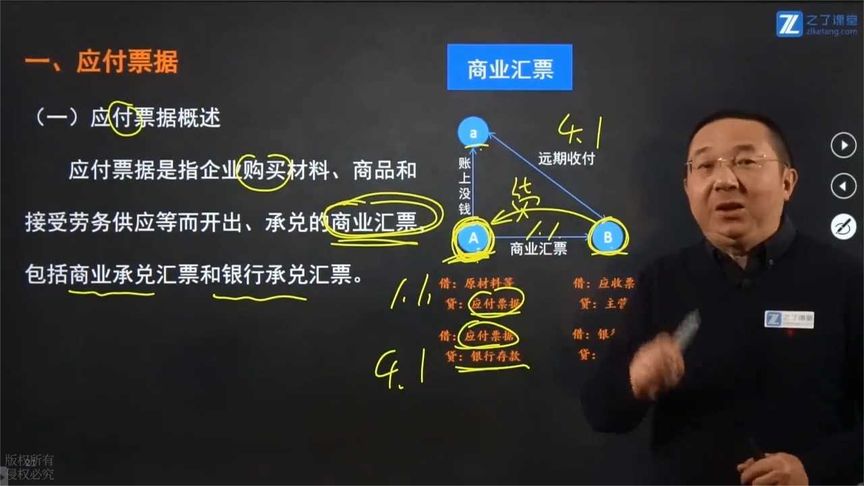 之了课堂
zlketang.com
一、应付票据
（一）应付票据概述
应付票据是指企业购买材料、商品和
接受劳务供应等而开出、承兑的商业汇票，
包括商业承兑汇票和银行承兑汇票。
商业汇票
a
4.1
远期收付
账上没钱
货
A
1.1
B
商业汇票
1.1
借：原材料等
贷：应付票据
借：应收票
贷：主营
4.1
借：应付票据
贷：银行存款
借：银
贷：
之了课堂
版权所有
侵权必究